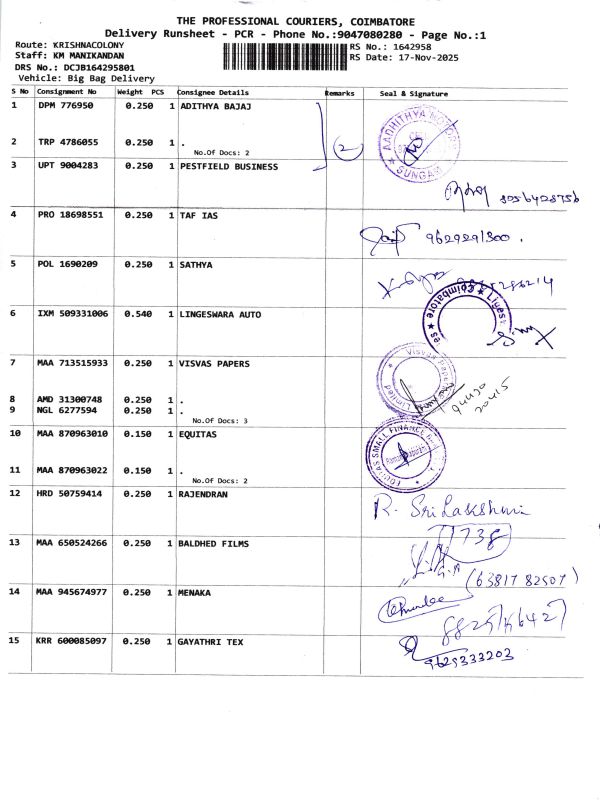 THE PROFESSIONAL COURIERS, COIMBATORE
Delivery Runsheet - PCR - Phone No.:9047080280 - Page No.:1
Route: KRISHNACOLONY
Staff: KM MANIKANDAN
DRS No.: DCJB164295801
Vehicle: Big Bag Delivery
RS No.: 1642958
RS Date: 17-Nov-2025
S No Consignment No Weight PCS Consignee Details Remarks Seal & Signature
1 DPM 776950 0.250 1 ADITHYA BAJAJ
AADHITHYA MOTORS
SUNGAM
2 TRP 4786055 0.250 1 .
No.Of Docs: 2
2
3 UPT 9004283 0.250 1 PESTFIELD BUSINESS
8056428756
4 PRO 18698551 0.250 1 TAF IAS
9629291300.
5 POL 1690209 0.250 1 SATHYA
6 IXM 509331006 0.540 1 LINGESWARA AUTO
Coimbatore
7 MAA 713515933 0.250 1 VISVAS PAPERS
Visvas Papers
Limited
8 AMD 31300748 0.250 1 .
9 NGL 6277594 0.250 1 .
No.Of Docs: 3
94430
20415
10 MAA 870963010 0.150 1 EQUITAS
EQUITAS SMALL FINANCE
11 MAA 870963022 0.150 1 .
No.Of Docs: 2
12 HRD 50759414 0.250 1 RAJENDRAN
R. Sri Lakshmi
13 MAA 650524266 0.250 1 BALDHED FILMS
1738
(63817 82507)
14 MAA 945674977 0.250 1 MENAKA
15 KRR 600085097 0.250 1 GAYATHRI TEX
9629333203